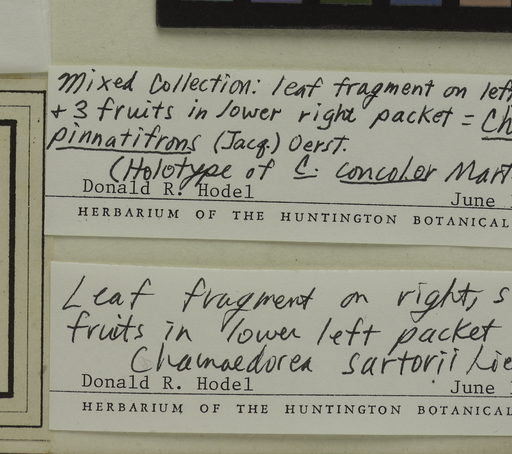 Mixed Collection: leaf fragment on left
+ 3 fruits in lower right packet = Ch
pinnatifrons (Jacq.) Oerst.
(Holotype of C. concolor Mart
Donald R. Hodel June
HERBARIUM OF THE HUNTINGTON BOTANICAL
Leaf fragment on right, s
fruits in lower left packet
Chamaedorea sartorii Lie
Donald R. Hodel June
HERBARIUM OF THE HUNTINGTON BOTANICAL